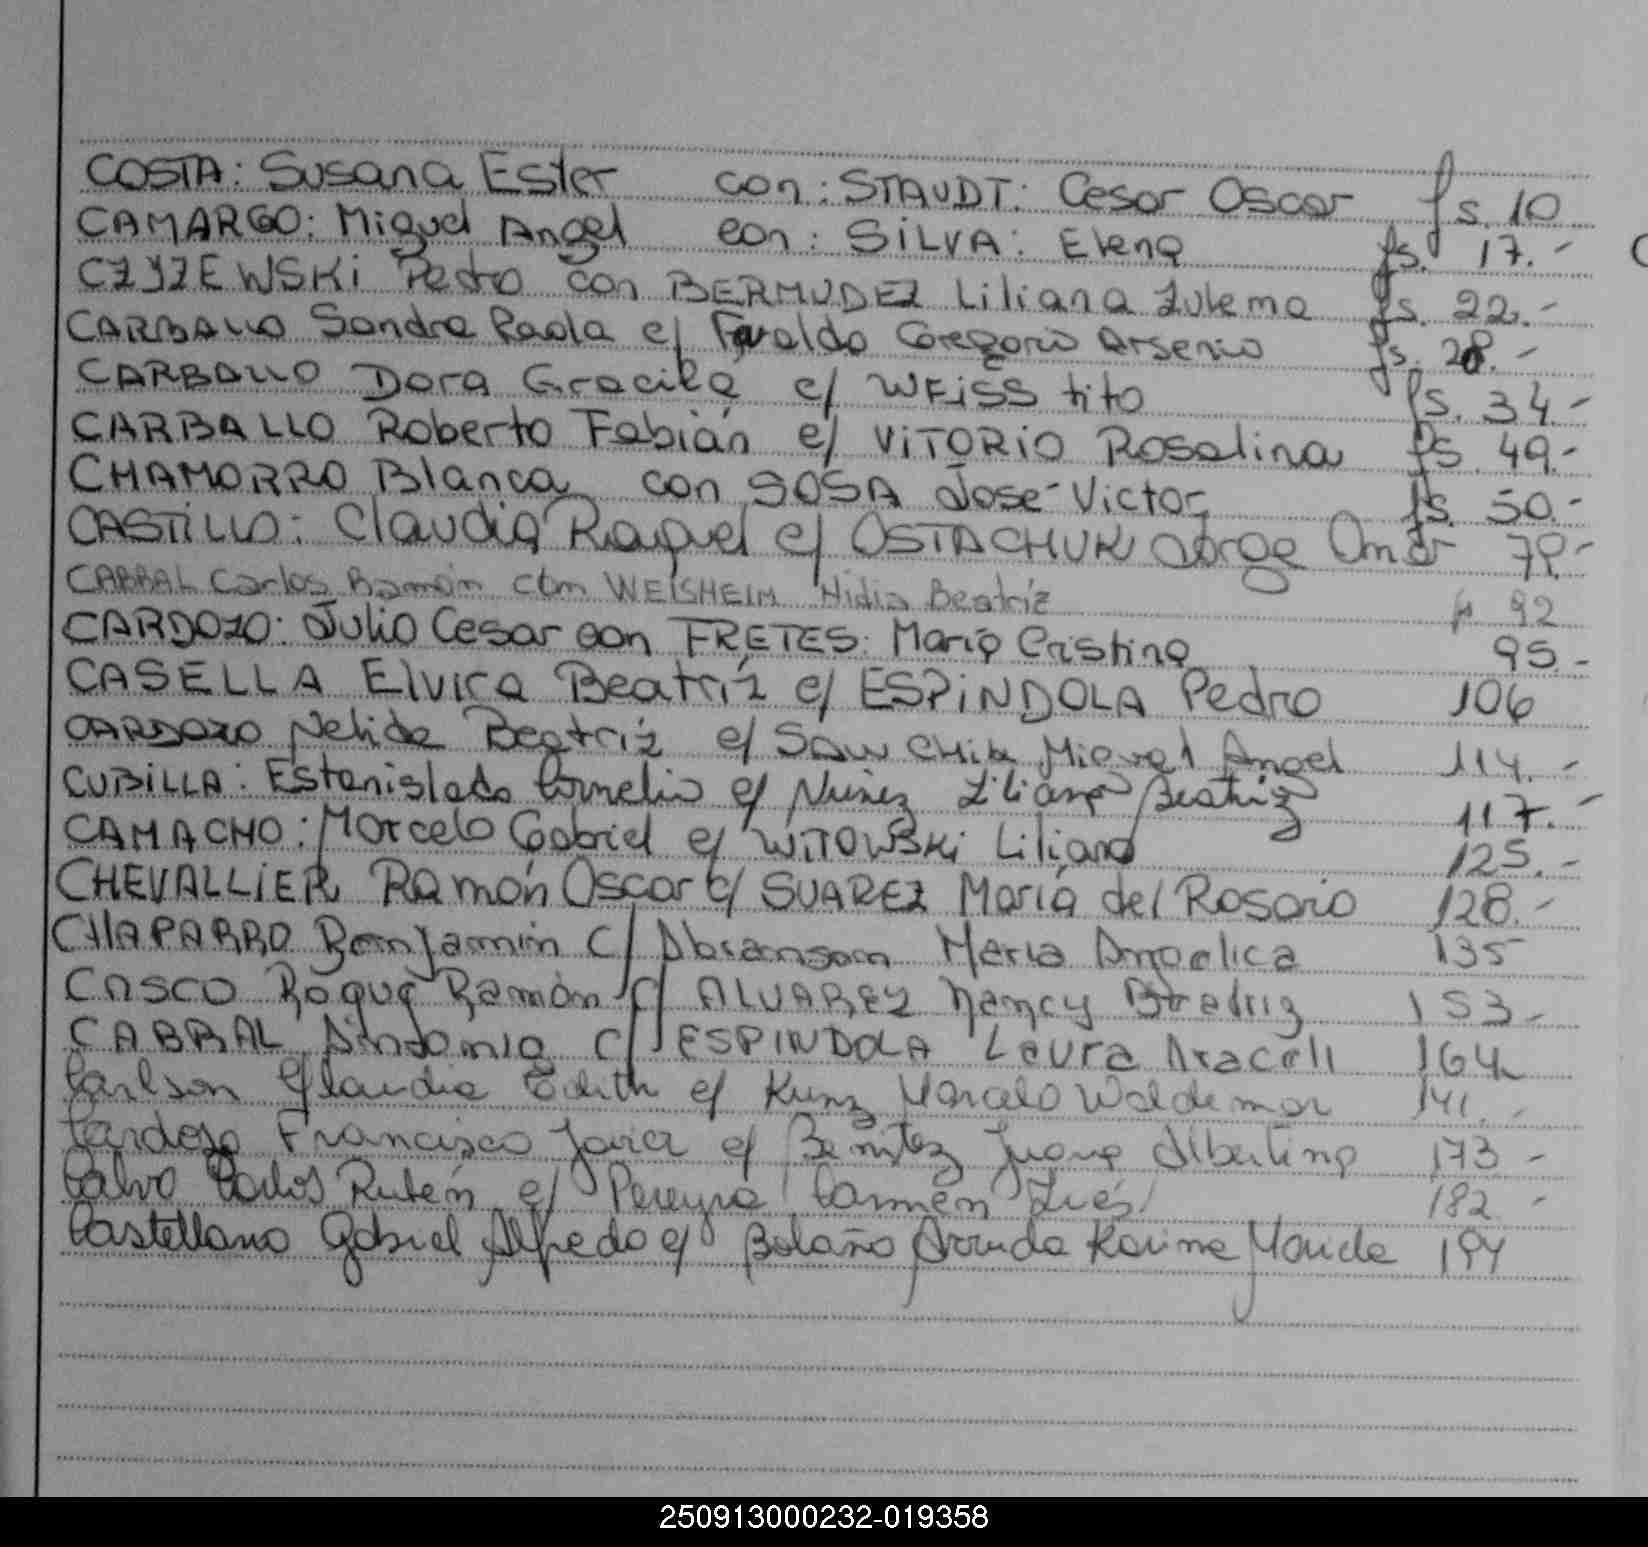 COSTA: Susana Ester con: STAUDT: Cesar Oscar fs. 10
CAMARGO: Miguel Angel con: SILVA: Elena fs. 17.-
CZYZEWSKI Pedro con BERMUDEZ Liliana Zulema fs. 22.-
CARBALLO Sandra Paola c/ Favaldo Gregorio Arsenio fs. 28.-
CARBALLO Dora Graciela c/ WEISS tito fs. 34.-
CARBALLO Roberto Fabián c/ VITORIO Rosalina fs. 49.-
CHAMORRO Blanca con SOSA José Victor fs. 50.-
CASTILLO: Claudia Raquel c/ OSTACHUK Jorge Omar 79.-
CABRAL Carlos Ramón con WEISHEIM Nidia Beatriz fs 92
CARDOZO: Julio Cesar con FRETES: Maria Cristina 95.-
CASELLA Elvira Beatriz c/ ESPINDOLA Pedro 106
CARDOZO Nelida Beatriz c/ SAWCHIK Miguel Angel 114.-
CUBILLA: Estanislado Cornelio c/ Nuñez Liliana Beatriz 117.-
CAMACHO: Marcelo Gabriel c/ WITOWSKI Liliana 125.-
CHEVALLIER Ramón Oscar c/ SUAREZ María del Rosario 128.-
CHAPARRO Benjamin c/ Abramson Maria Angelica 135
CASCO Roque Ramón c/ ALVAREZ Nancy Beatriz 153-
CABRAL Antonio c/ ESPINDOLA Laura Araceli 164
Carlson Claudia Edith c/ Kunz Marcelo Waldemar 141.-
Cardozo Francisco Javier c/ Benitez Juana Albertina 173-
Calvo Carlos Rubén c/ Pereyra Carmen Inés 182-
Castellano Gabriel Alfredo c/ Bolaño Arruda Karina 194
250913000232-019358